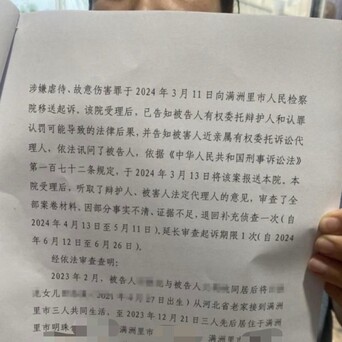 涉嫌虐待、故意伤害罪于 2024 年 3 月 11 日向满洲里市人民检察
院移送起诉。该院受理后,已告知被告人有权委托辩护人和认罪
认罚可能导致的法律后果,并告知被害人近亲属有权委托诉讼代
理人,依法讯问了被告人,依据《中华人民共和国刑事诉讼法》
第一百七十二条规定,于 2024 年 3 月 13 日将该案报送本院。本
院受理后,听取了辩护人、被害人法定代理人的意见,审查了全
部案卷材料。因部分事实不清、证据不足,退回补充侦查一次(自
2024 年 4 月 13 日至 5 月 11 日),延长审查起诉期限 1 次(自 2024
年 6 月 12 日至 6 月 26 日)。
经依法审查查明:
2023 年 2 月,被告人 与被告人 同居后将
女儿 月 27 日出生)从河北省老家接到满洲
里市三人共同生活,至 2023 年 12 月 21 日三人先后居住于满洲
里市明珠 满洲里市 满洲里